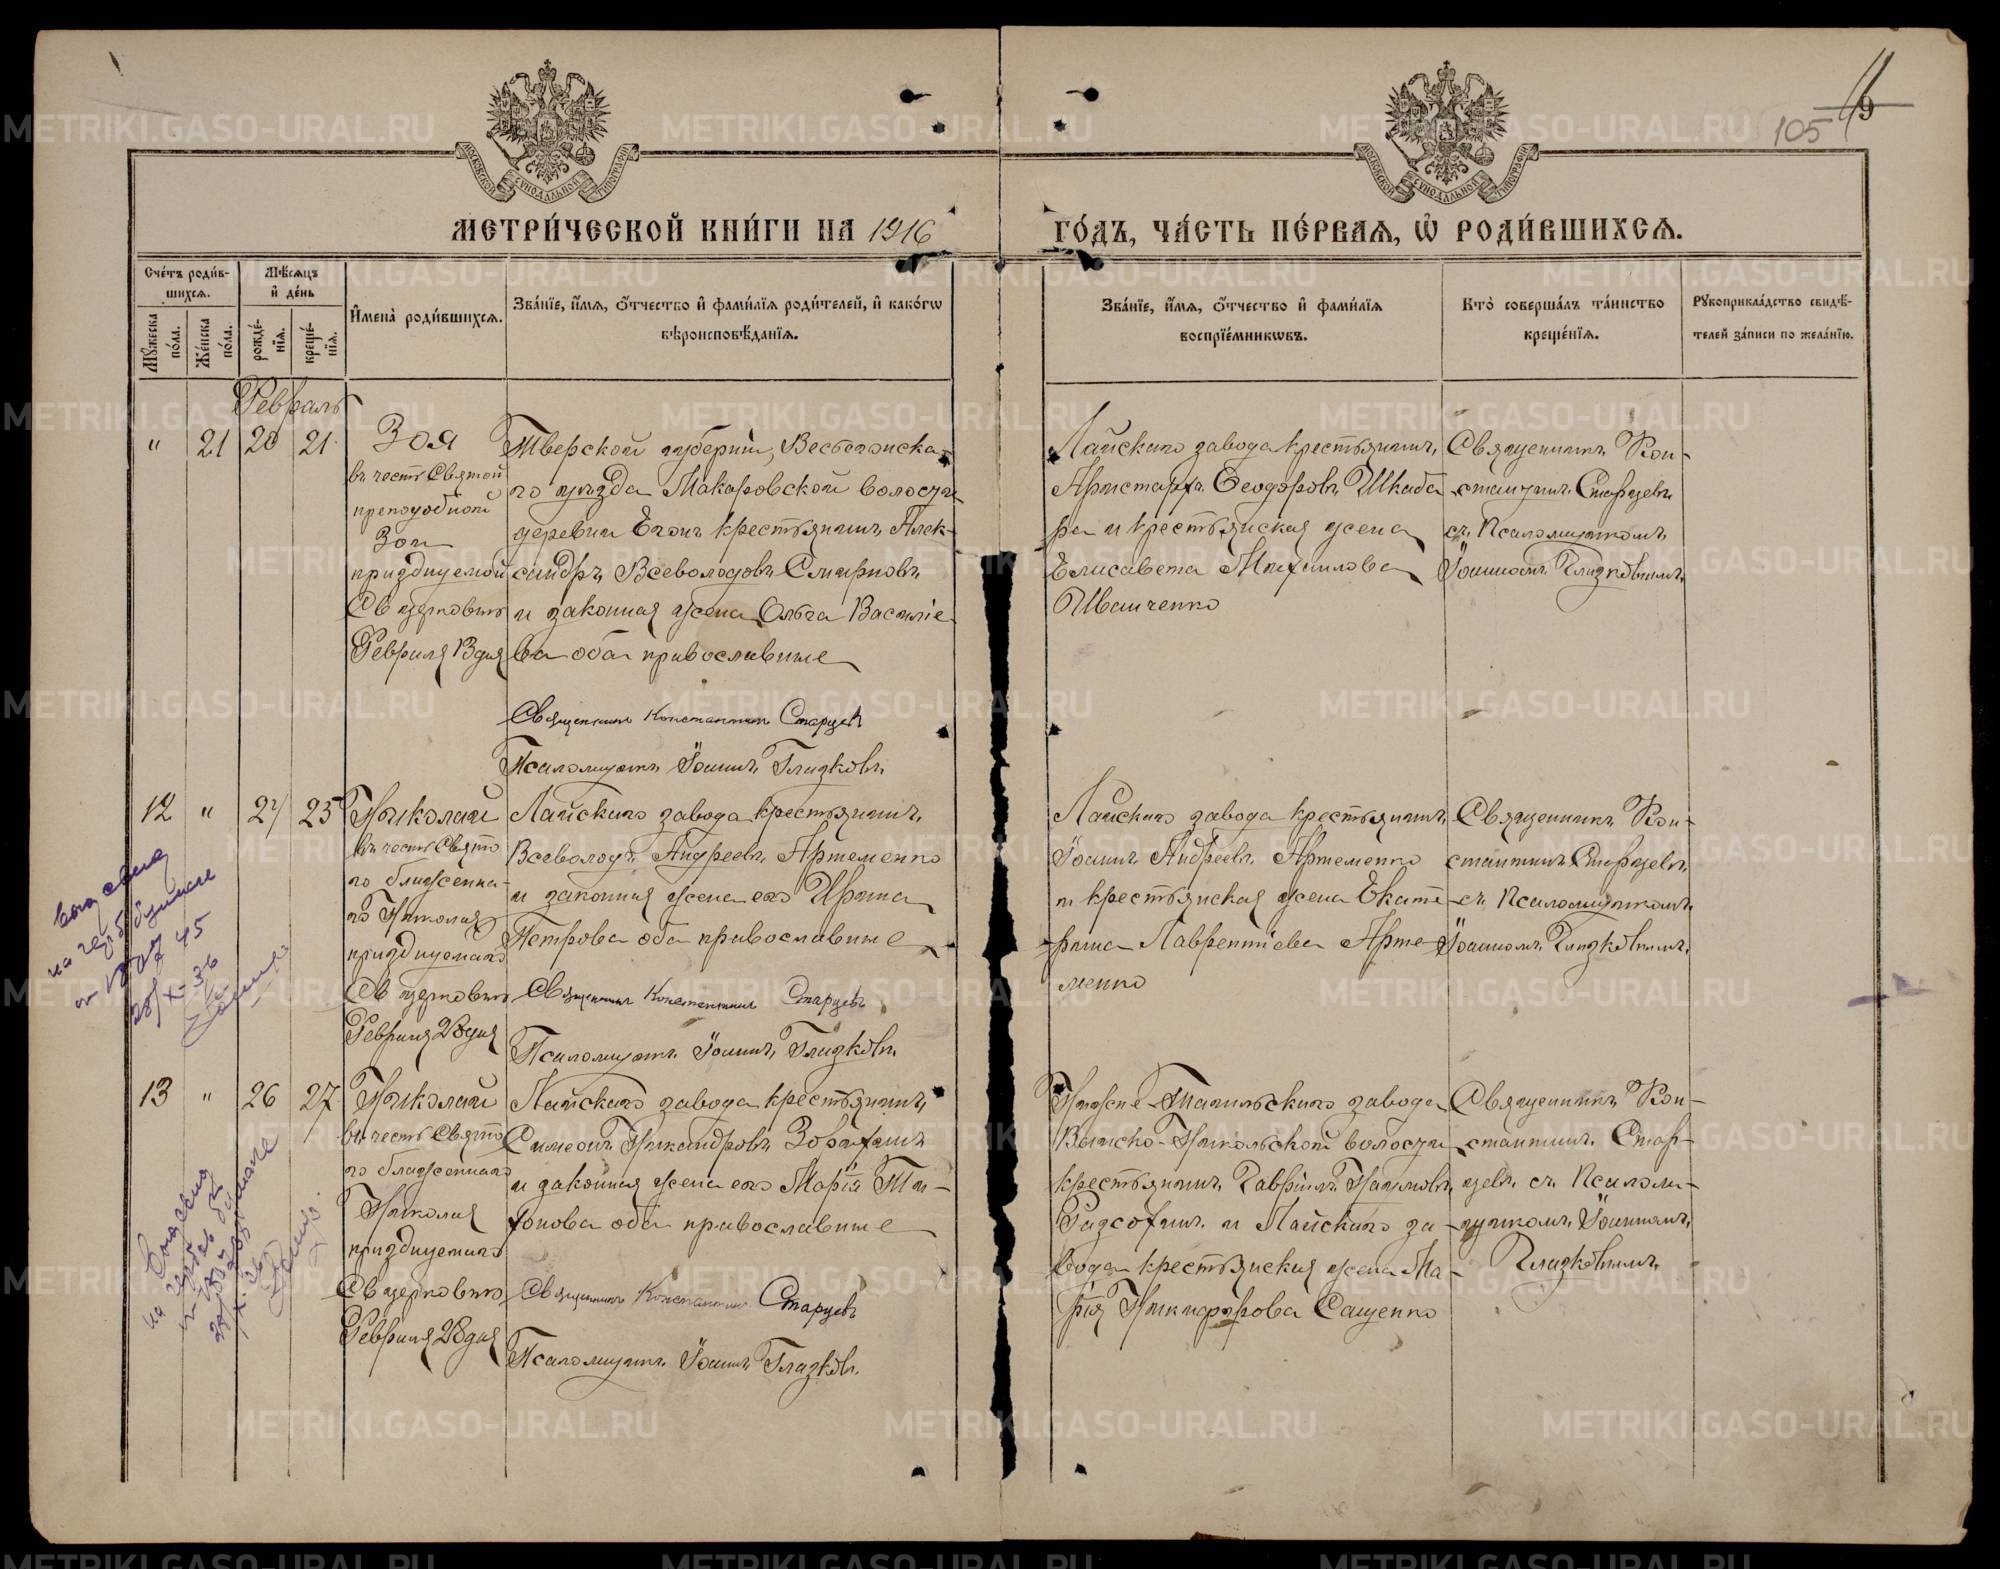 105
9
МОСКОВСКОЙ СѴНОДАЛЬНОЙ ТИПОГРАФІИ
МОСКОВСКОЙ СѴНОДАЛЬНОЙ ТИПОГРАФІИ
МЕТРИ́ЧЕСКОЙ КНИ́ГИ НА 1916
ГО́ДЪ, ЧА́СТЬ ПЕ́РВАЯ, Ѡ҆ РОДИ́ВШИХСЯ.
Сче́тъ роди́в-
шихся.
Мꙋ́жеска по́ла.
Же́нска по́ла.
Мѣ́сяцъ
и҆ де́нь
рожде́-
нїя.
креще́-
нїя.
И҆мена̀ роди́вшихся.
Зва́нїе, и҆́мя, ѻ҆́тчество и҆ фами́лїя роди́телей, и҆ како́гѡ
вѣроисповѣ́данїя.
Зва́нїе, и҆́мя, ѻ҆́тчество и҆ фами́лїя
воспрїе́мникѡвъ.
Кто̀ соверша́лъ та́инство
креще́нїя.
Рꙋкоприкла́дство свидѣ́-
телей за́писи по жела́нїю.
Февраль
" 21 20 21.
Зоя
въ честь Святой
преподобной
Зои
празднуемой
Св церковью
Февраля 13 дня
Тверской губерніи, Весьегонска-
го уѣзда Макаровской волости
деревни крестьянинъ Алек-
сандръ Всеволодовъ Смирновъ
и законная жена Ольга Василіе-
ва оба православные
Священникъ Константинъ Старцевъ
Псаломщикъ Іоаннъ Глазковъ.
Лайскаго завода крестьянинъ
Аристархъ Ѳеодоровъ Шкаба-
ра и крестьянская жена
Елисавета Михаилова
Иванченко
Священникъ Кон-
стантинъ Старцевъ
съ Псаломщикомъ
Іоанномъ Глазковымъ.
12 " 24 25
Николай
въ честь Свято
го блаженна-
го Николая
празднуемаго
Св церковью
Февраля 28 дня
Лайскаго завода крестьянинъ
Всеволодъ Андреевъ Артеменко
и законная жена его Ирина
Петрова оба православные
Священникъ Константинъ Старцевъ
Псаломщикъ Іоаннъ Глазковъ.
Лайскаго завода крестьянинъ
Іоаннъ Андреевъ Артеменко
и крестьянская жена Екате-
рина Лаврентіева Арте-
менко
Священникъ Кон-
стантинъ Старцевъ
съ Псаломщикомъ
Іоанномъ Глазковымъ.
13 " 26 27.
Николай
въ честь Свято
го блаженнаго
Николая
празднуемаго
Св церковью
Февраля 28 дня
Лайскаго завода крестьянинъ
Симеонъ Никандровъ Зобнинъ
и законная жена его Марія Ти-
хонова оба православные
Священникъ Константинъ Старцевъ
Псаломщикъ Іоаннъ Глазковъ.
Нижне-Тагильскаго завода
Выйско-Никольской волости
крестьянинъ Гавріилъ Наумовъ
и Лайскаго за-
вода крестьянская жена Ма-
рія Никифорова Сащенко
Священникъ Кон-
стантинъ Стар-
цевъ съ Псалом-
щикомъ Іоанномъ
Глазковымъ.